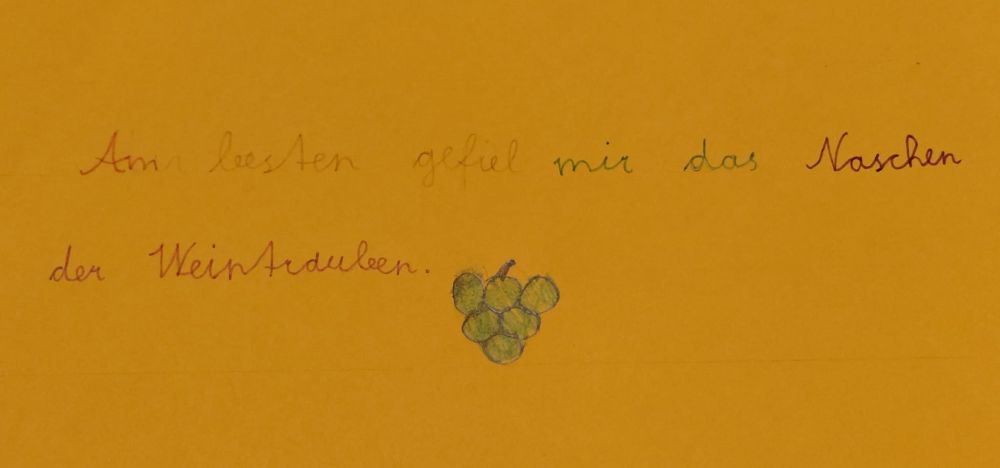 Am besten gefiel mir das Naschen
der Weintrauben.